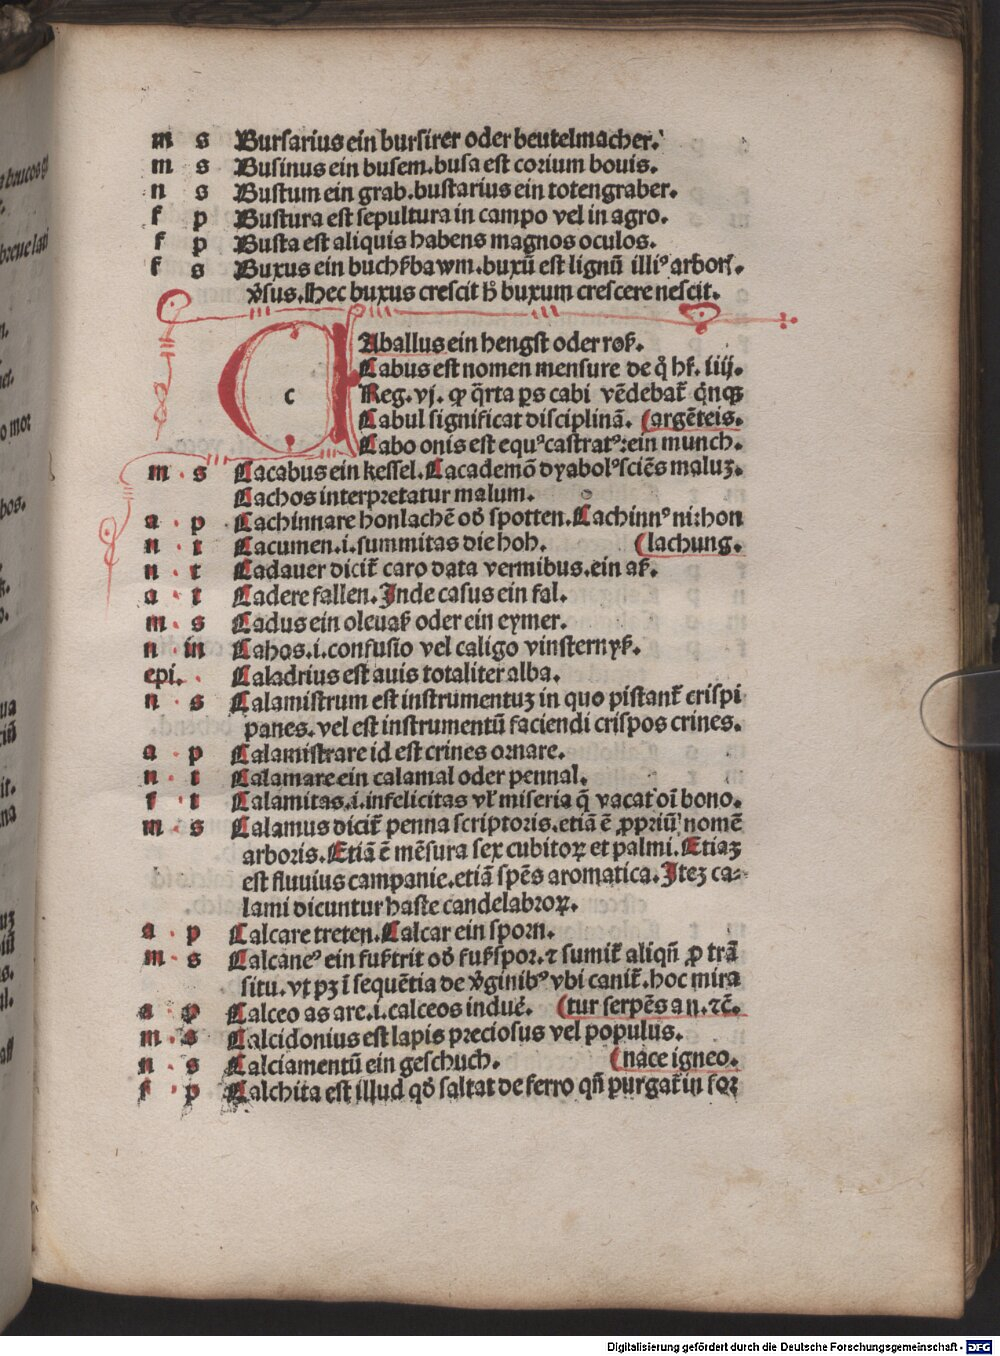 m s Bursarius ein bursirer oder beutelmacher.
m s Businus ein busem.busa est corium bouis.
n s Bustum ein grab.bustarius ein totengraber.
f p Bustura est sepultura in campo vel in agro.
f p Busta est aliquis habens magnos oculos.
f s Buxus ein buchßbawm.buxū est lignū illiꝰ arborſ.
v̓sus.Hec buxus crescit h̄ buxum crescere nescit.
CAballus ein hengst oder roß.
c
Cabus est nomen mensure de q̊ hr̄. iiij.
Reg.vj. ꝙ q̄rta ps cabi vēdebat̄ qn̄qꝫ
Cabul significat disciplinā. (argēteis.
Cabo onis est equꝰcastratꝰ:ein munch.
m s Cacabus ein kessel.Cacademō dyabolꝰsciēs maluꝫ.
Cachos interpretatur malum.
a p Cachinnare honlachē od̓ spotten.Cachinnꝰ ni:hon
n t Cacumen.i.summitas die hoh. (lachung.
n t Cadauer dicit̄ caro data vermibus.ein aß.
a t Cadere fallen.Inde casus ein fal.
m s Cadus ein olevaß oder ein eymer.
n in Cahos.i.confusio vel caligo vinsternyß.
epi. Caladrius est auis totaliter alba.
n s Calamistrum est instrumentuꝫ in quo pistant̄ crispi
panes.vel est instrumentū faciendi crispos crines.
a p Calamistrare id est crines ornare.
n t Calamare ein calamal oder pennal.
f t Calamitas.i.infelicitas vl̓ miseria q̄ vacat oī bono.
m s Calamus dicit̄ penna scriptoris.etiā ē ꝓpriū nomē
arboris.Etiā ē mēsura sex cubitoꝝ et palmi.Etiaꝫ
est fluuius campanie.etiā spēs aromatica.Iteꝫ ca⸗
lami dicuntur haste candelabroꝝ.
a p Calcare treten.Calcar ein sporn.
m s Calcaneꝰ ein fußtrit od̓ fußspor.⁊ sumit̄ aliqn̄ ꝓ trā
situ.vt pꝫ ī sequētia de v̓ginibꝰ vbi canit̄.hoc mira
a p Calceo as are.i.calceos induē. (tur serpēs an.⁊cē.
m s Calcidonius est lapis preciosus vel populus.
n s Calciamentū ein geschuch. (nace igneo.
f p Calchita est illud qd̓ saltat de ferro qn̄ purgat̄ in for
Digitalisierung gefördert durch die Deutsche Forschungsgemeinschaft - DFG